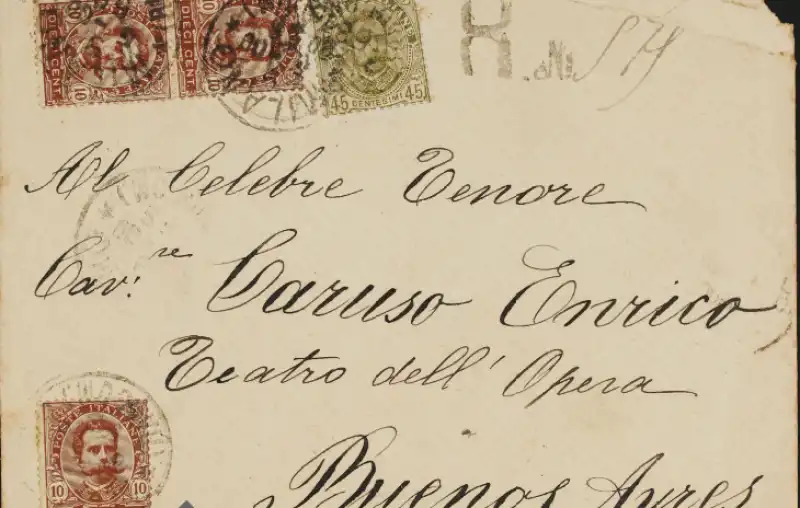 DIECI CENT. 10
10 DIECI CENT.
45 CENTESIMI 45
R. No. 577
Al Celebre Tenore
Cav.re Caruso Enrico
Teatro dell' Opera
POSTE ITALIANE
10 10
Buenos Ayres